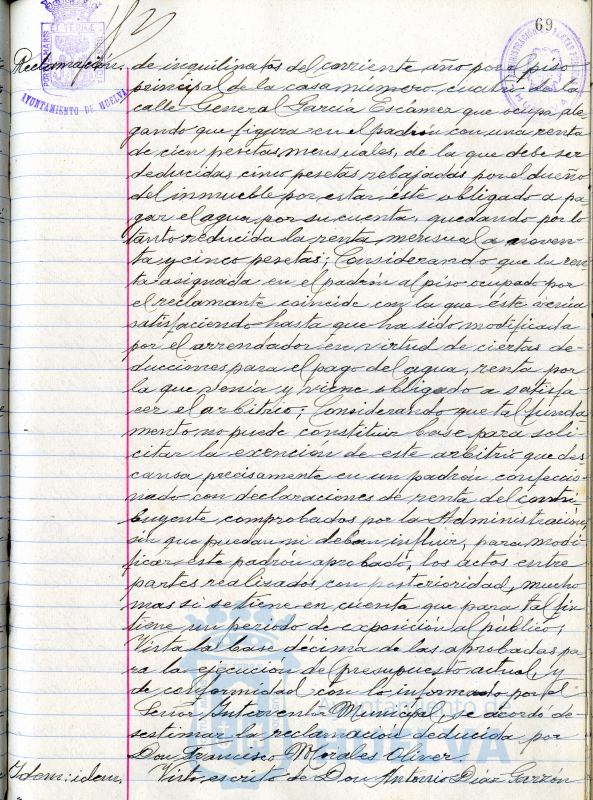 69
AYUNTAMIENTO DE HUELVA
Reclamación. de inquilinatos del corriente año por el piso
principal de la casa número cuatro de la
calle General García Escámez que ocupa, ale
gando que figura en el padrón con una renta
de cien pesetas mensuales, de la que debe ser
deducidas cinco pesetas rebajadas por el dueño
del inmueble por estar éste obligado a pa
gar el agua por su cuenta, quedando por lo
tanto reducida la renta mensual a noven
ta y cinco pesetas; Considerando que la ren
ta asignada en el padrón al piso ocupado por
el reclamante coincide con la que éste venía
satisfaciendo hasta que ha sido modificada
por el arrendador en virtud de ciertas de-
ducciones para el pago del agua, renta por
la que venía y viene obligado a satisfa
cer el arbitrio; Considerando que tal funda
mento no puede constituir base para soli-
citar la exención de este arbitrio que des
cansa precisamente en un padrón confeccio
nado con declaraciones de renta del contri
buyente comprobados por la Administración,
sin que puedan ni deban influir, para modi
ficar este padrón aprobado, los actos entre
partes realizados con posterioridad, mucho
mas si se tiene en cuenta que para tal fin
tiene un periodo de exposición al público;
Vista la base décima de las aprobadas pa-
ra la ejecución de presupuesto actual, y
de conformidad con lo informado por el
Señor Interventor Municipal, se acordó de-
sestimar la reclamación deducida por
Don Francisco Morales Oliver.
Idem: idem. Visto escrito de Don Antonio Díaz Garzón
Ayuntamiento de
HUELVA